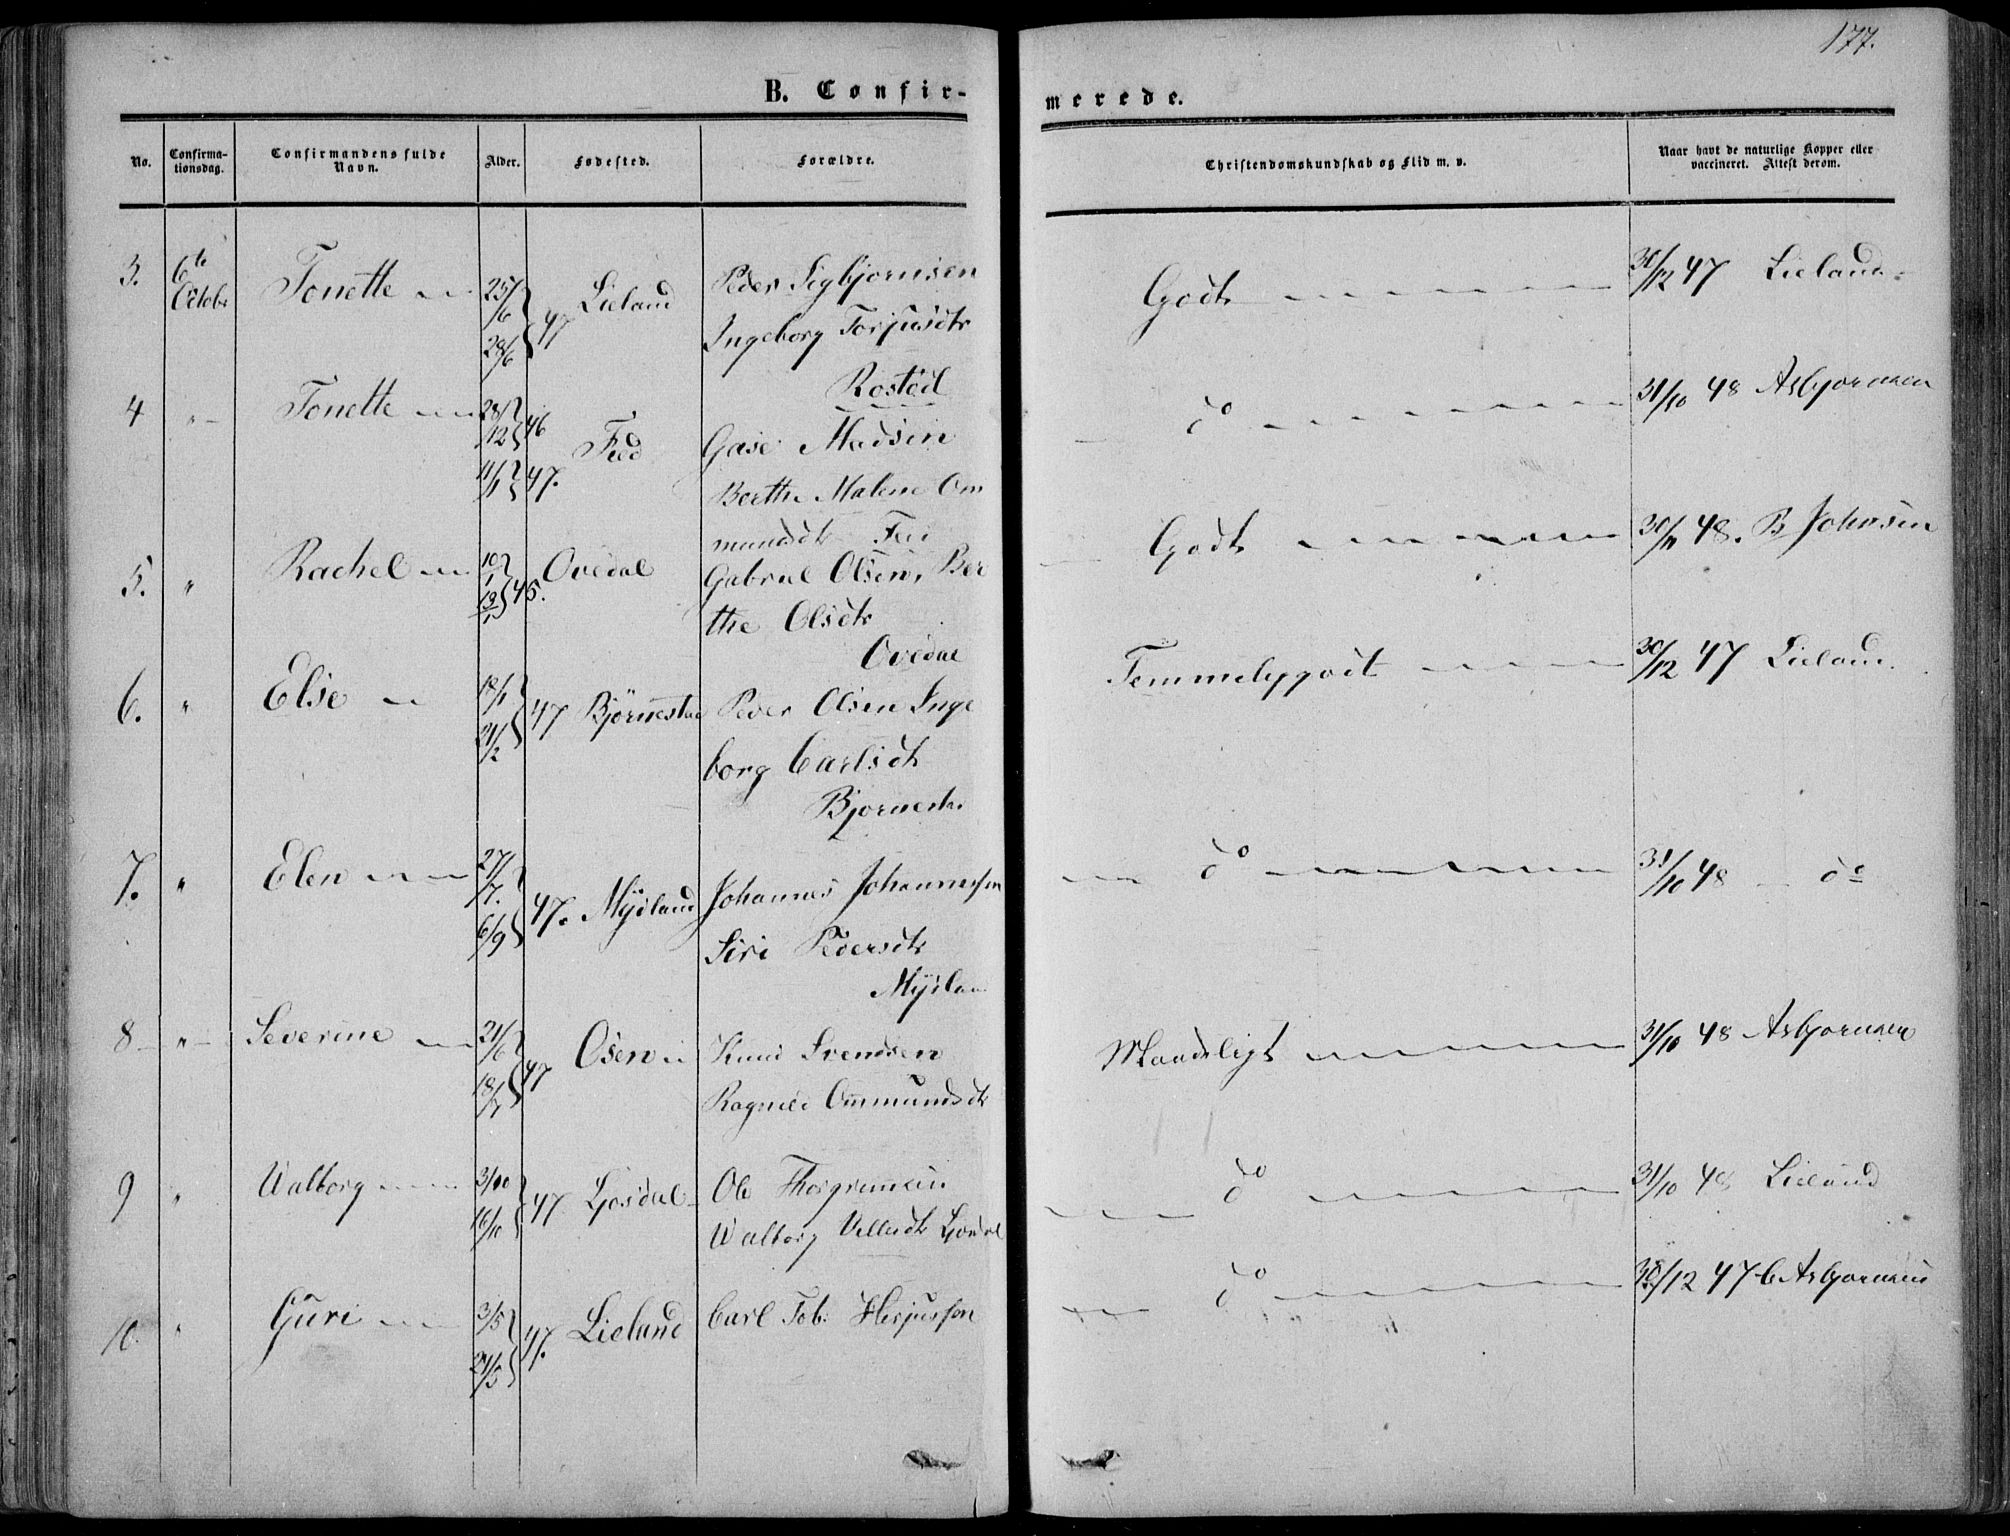 177.
B. Confir-
merede.
No.
Confirma-
tionsdag.
Confirmandens fulde
Navn.
Alder.
Fødested.
Forældre.
Christendomskundskab og Flid m. v.
Naar havt de naturlige Kopper eller
vaccineret. Attest derom.
3. 6te Octobr Tonette 25/6 28/6 47 Lieland Peder Sigbjørnsen
Ingeborg Torjusdtr
Rostøl
Godt 30/12 47 Lieland
4 " Tonette 28/12 46 11/1 47. Feed Gase Madsen
Berthe Malene Om
mundsdtr
do 31/10 48 Asbjørnsen
5. " Rachel 10/1 45. Ovedal Gabriel Olsen, Ber
the Olsdtr
Ovedal
Godt 48. B Johnsen
6. " Else 18/1 21/2 47 Bjørnestad Peder Olsen Inge
borg Carlsdtr
Bjørnesta
Temmeliggodt 30/12 47 Lieland
7. " Elen 27/7. 6/9 47. Mydland Johannes Johannessen
Siri Pedersdtr
Mydlan
do 31/10 48 do
8 " Severine 21/6 18/7 47 Osen Knud Svendsen
Ragnild Ommundsdtr
Maadeligt 31/10 48 Asbjørnsen
9 " Walborg 3/10 16/10 47 Gosdal Ole Thorgrimsen
Walborg
do 31/10 48 Lieland
10. " Guri 3/5 24/5 47. Lieland Carl Tob: Herjussøn
do 30/12 47 C Asbjørnsen